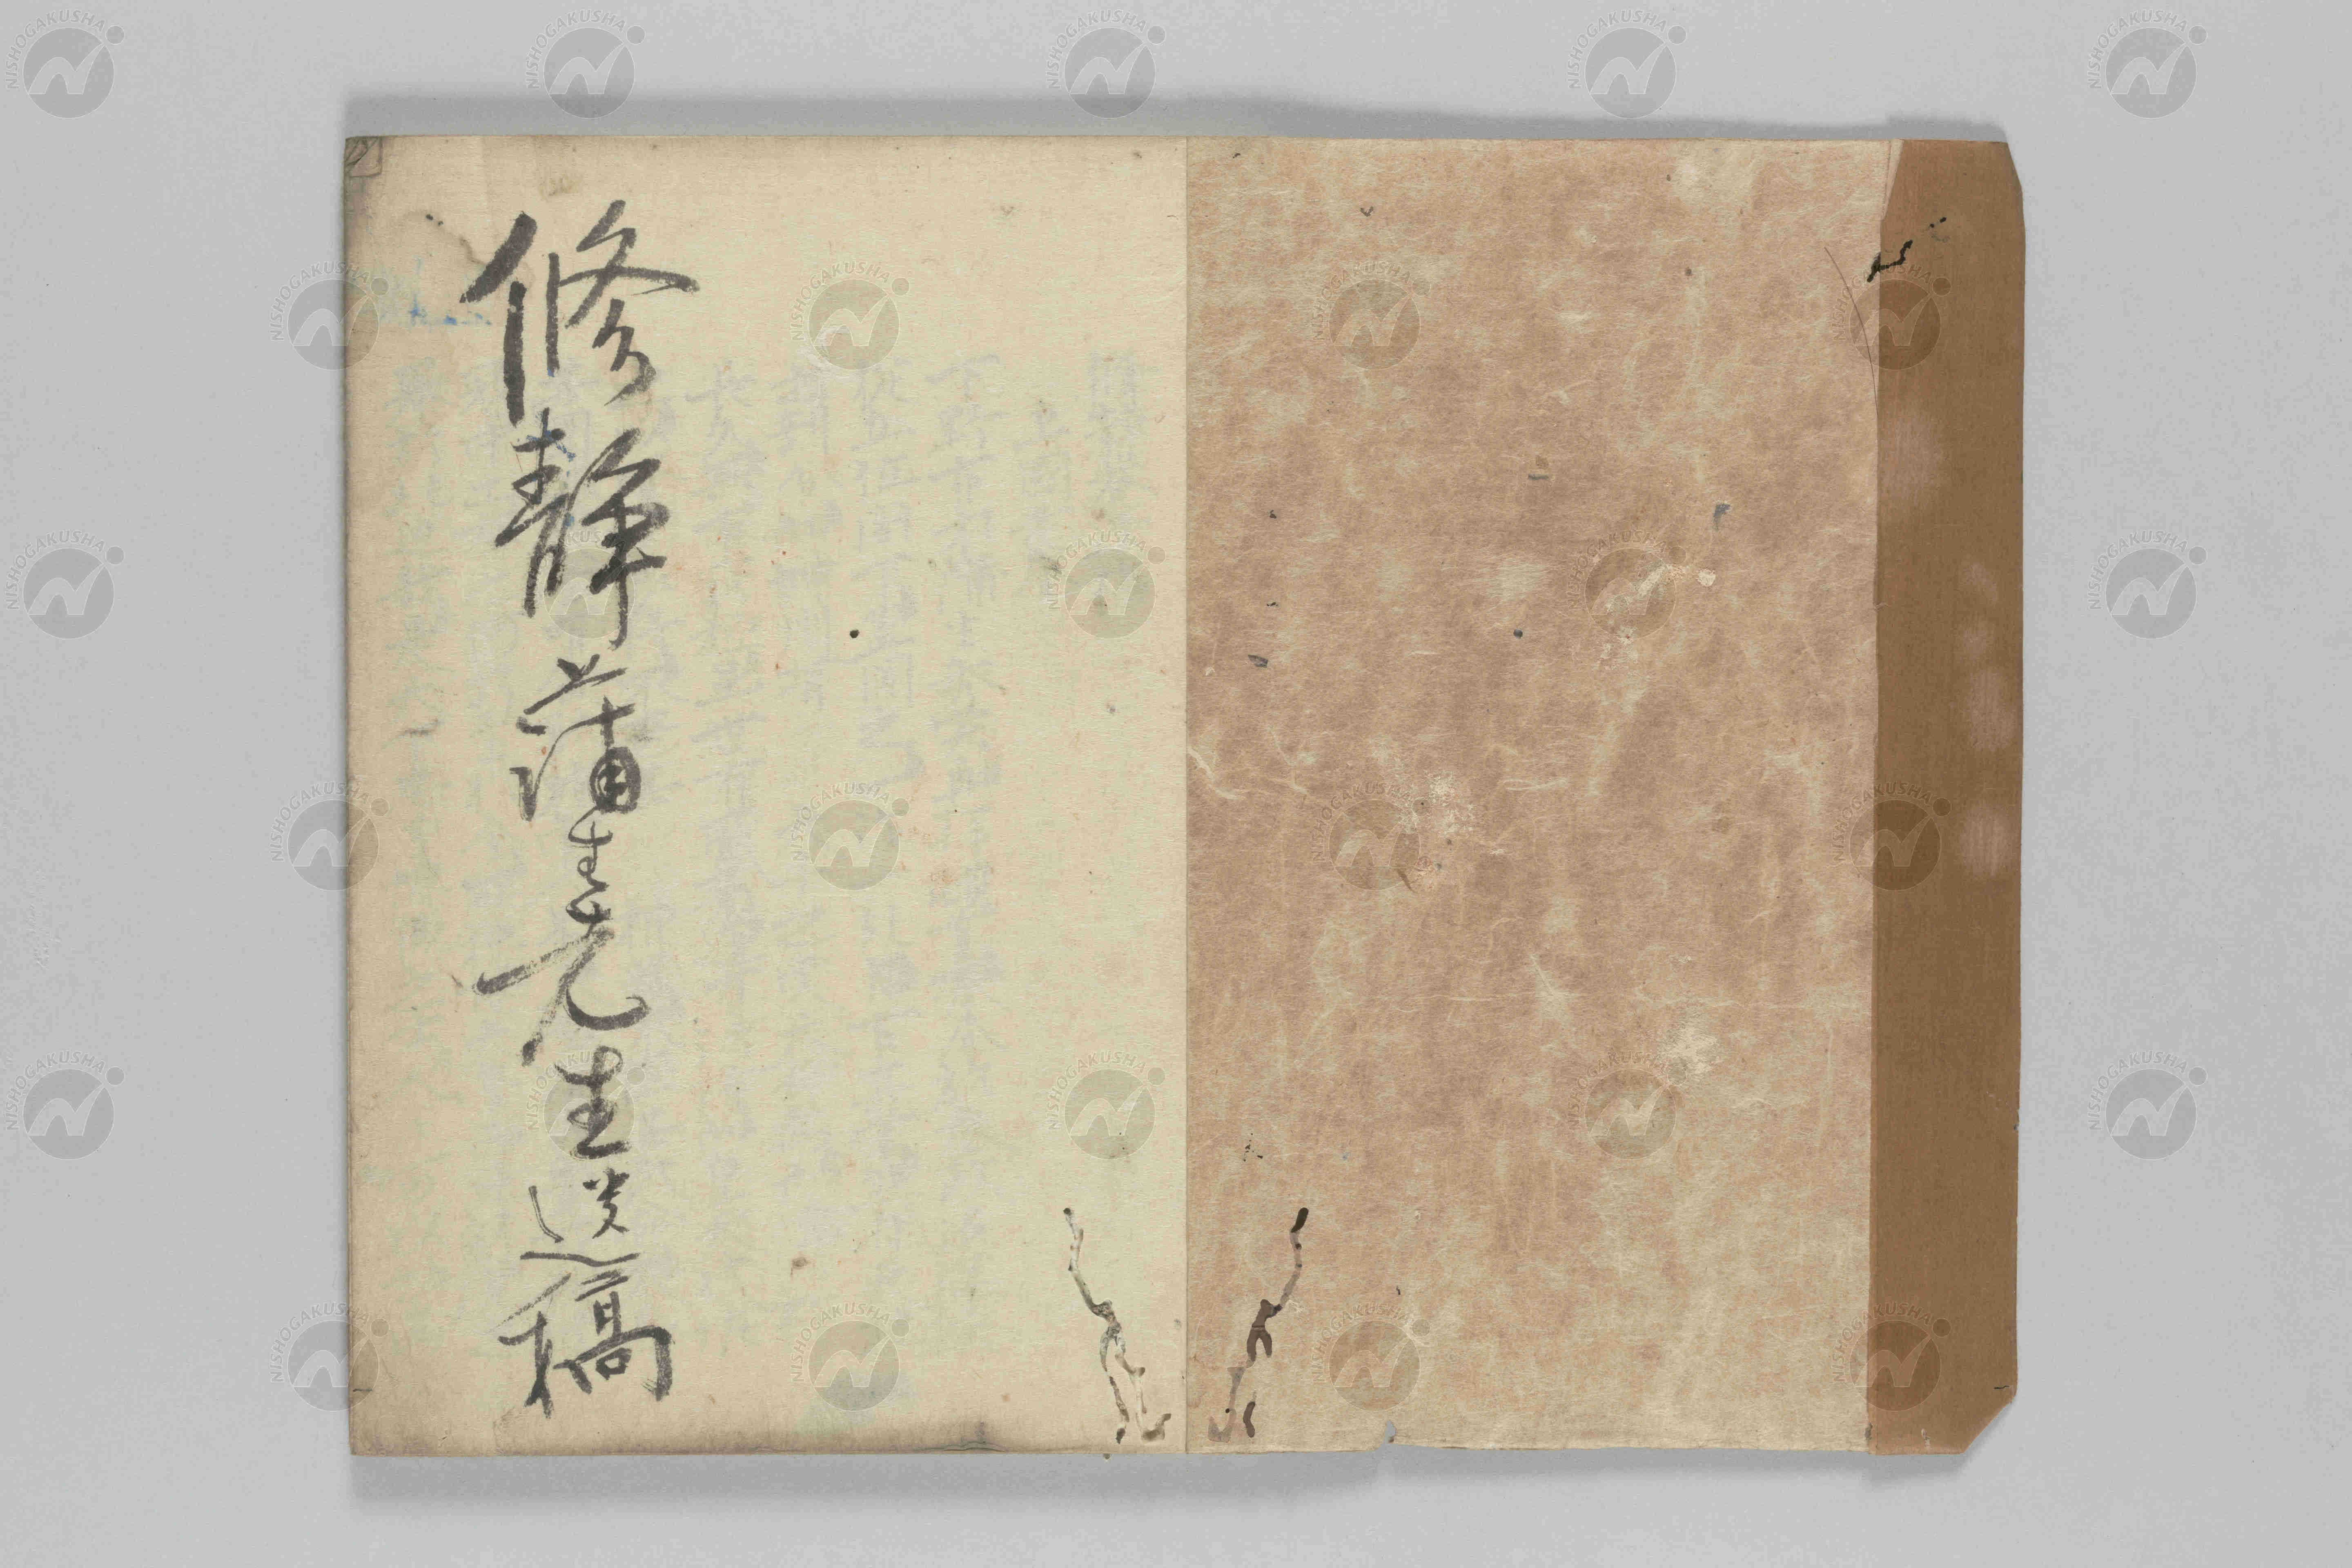 修静蒲生先生遺稿
NISHOGAKUSHA